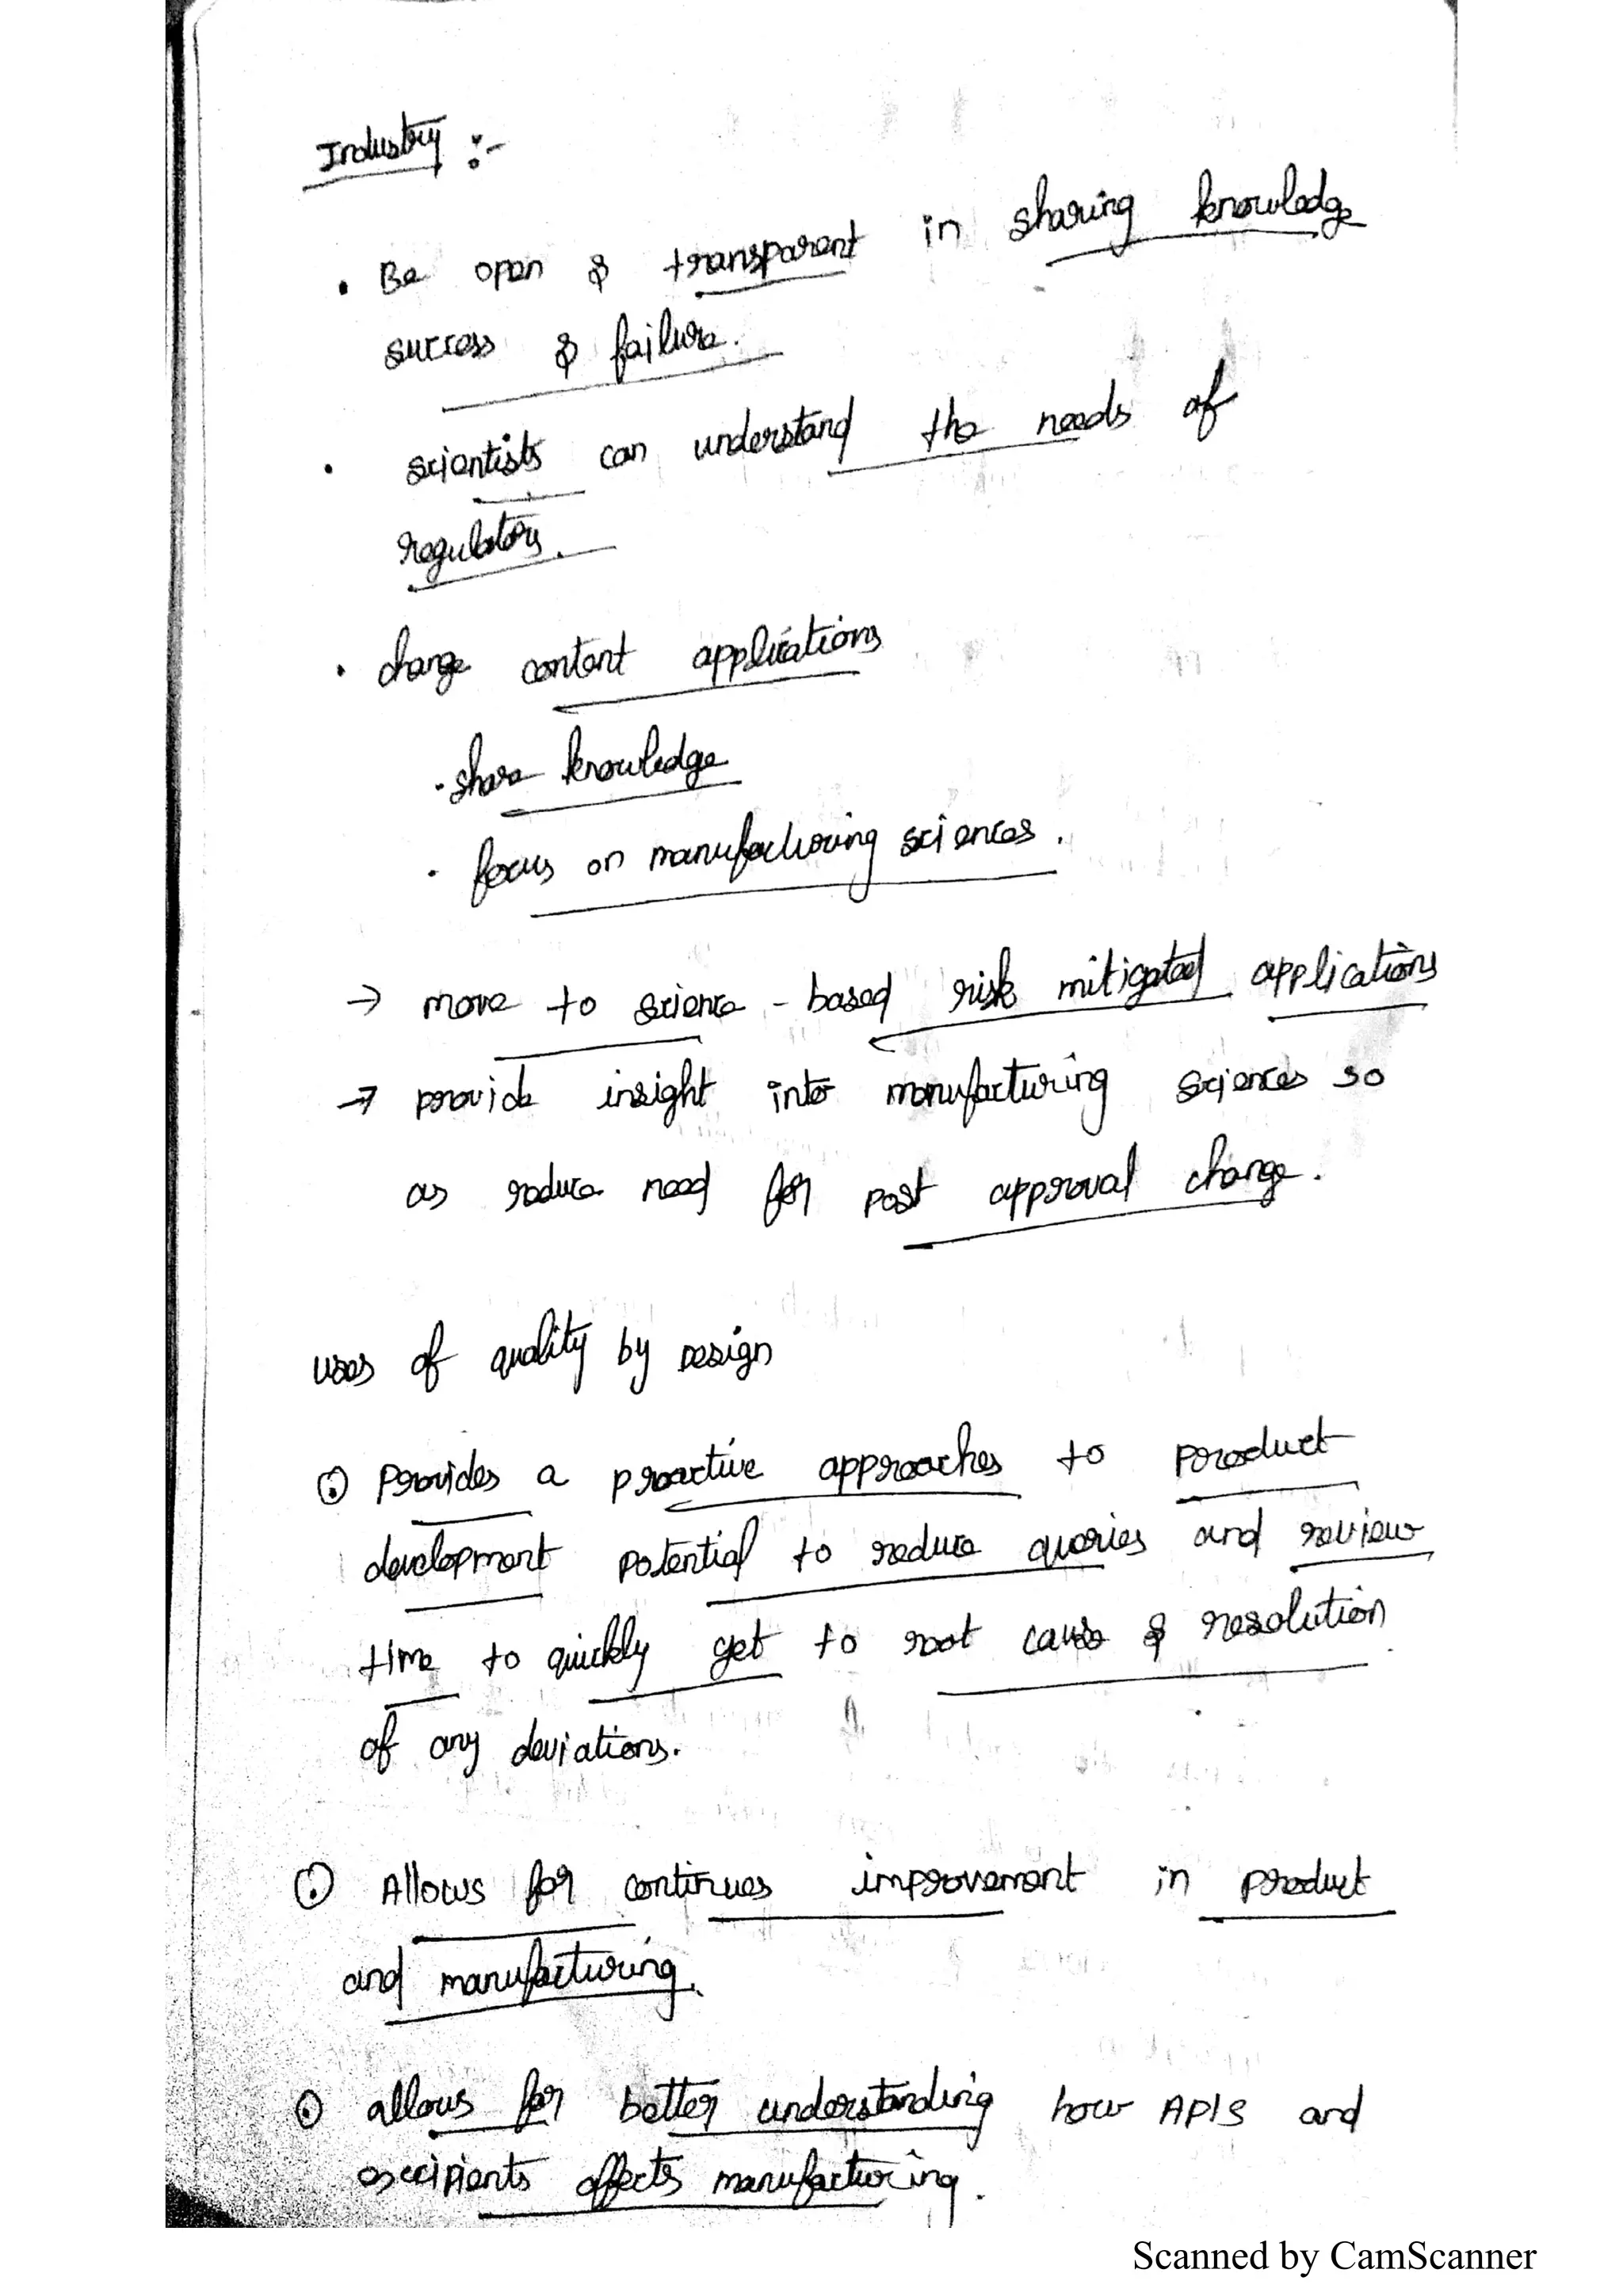 Industry :-
• Be open & transparent in sharing knowledge
success & failure.
• scientists can understand the needs of
regulatory.
• change content applications
• share knowledge
• focus on manufacturing sciences.
→ move to science - based risk mitigated applications
→ provide insight into manufacturing sciences so
as reduce need for post approval change.
uses of quality by Design
⊙ Provides a proactive approaches to product
development potential to reduce queries and review
time to quickly get to root cause & resolution
of any deviations.
⊙ Allows for continues improvement in product
and manufacturing.
⊙ allows for better understanding how APIS and
excipients affects manufacturing.
Scanned by CamScanner